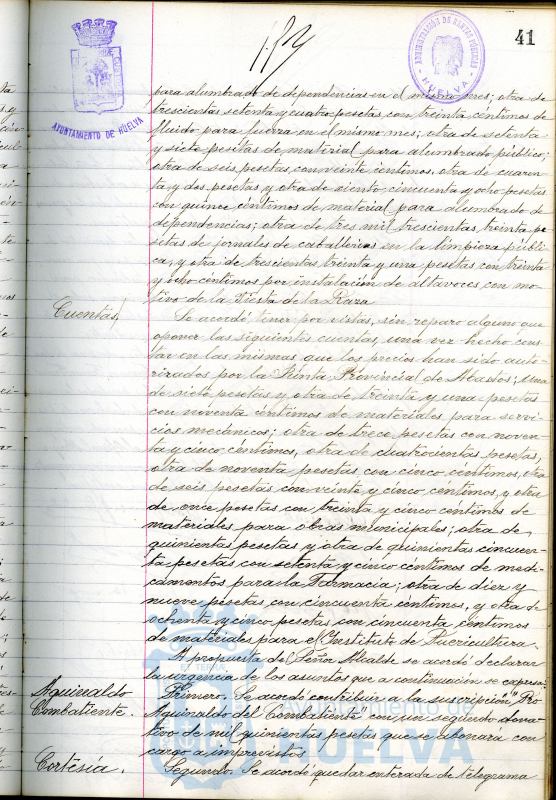 41
ADMINISTRACIÓN DE RENTAS PÚBLICAS
HUELVA
AYUNTAMIENTO DE HUELVA
para alumbrado de dependencias en el mismo mes; otra de
trescientas setenta y cuatro pesetas con treinta céntimos de
fluido para fuerza en el mismo mes; otra de setenta
y siete pesetas de material para alumbrado público;
otra de seis pesetas con veinte céntimos, otra de cuaren
ta y dos pesetas y otra de ciento cincuenta y ocho pesetas
con quince céntimos de material para alumbrado de
dependencias; otra de tres mil trescientas treinta pe
setas de jornales de caballerías en la limpieza públi
ca, y otra de trescientas treinta y una pesetas con treinta
y ocho céntimos por instalación de altavoces con mo
tivo de la Fiesta de la Raza
Cuentas
Se acordó, tener por vistas, sin reparo alguno que
oponer las siguientes cuentas, una vez hecho cons
tar en las mismas que los precios han sido auto-
rizados por la Junta Provincial de Abastos; una
de siete pesetas y otra de treinta y una pesetas
con noventa céntimos de materiales para servi
cios mecánicos; otra de trece pesetas con noven
ta y cinco céntimos, otra de cuatrocientas pesetas,
otra de noventa pesetas con cinco céntimos, otra
de seis pesetas con veinte y cinco céntimos, y otra
de once pesetas con treinta y cinco céntimos de
materiales para obras municipales; otra de
quinientas pesetas y otra de quinientas cincuen
ta pesetas con setenta y cinco céntimos de medi-
camentos para la Farmacia; otra de diez y
nueve pesetas con cincuenta céntimos, y otra de
ochenta y cinco pesetas con cincuenta céntimos
de materiales para el Instituto de Puericultura.
A propuesta del Señor Alcalde se acordó declarar
la urgencia de los asuntos que a continuación se expresan:
Aguinaldo
Combatiente.
Primero. Se acordó contribuir a la suscripción "Pro
Aguinaldo del Combatiente con un segundo dona
tivo de mil quinientas pesetas que se abonará con
cargo a imprevistos
Cortesía.
Segundo. Se acordó quedar enterada de telegrama
Ayuntamiento de
HUELVA